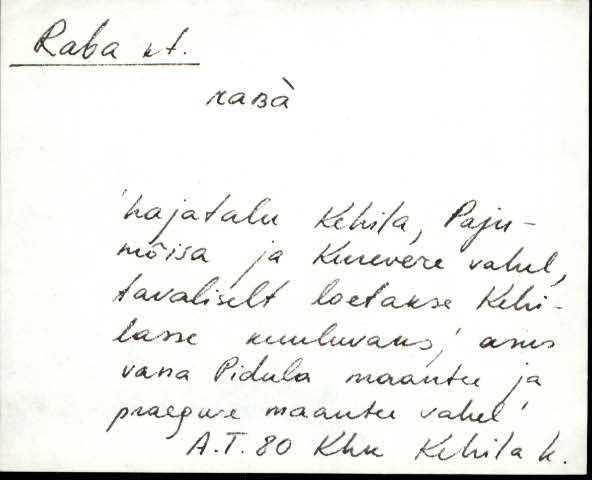 Raba üt.
raʙà
'hajatalu Kehila, Paju-
mõisa ja Kurevere vahel,
tavaliselt loetakse Kehi-
lasse kuuluvaks; asus
vana Pidula maantee ja
praeguse maantee vahel'
A.T. 80 Khk Kehila k.